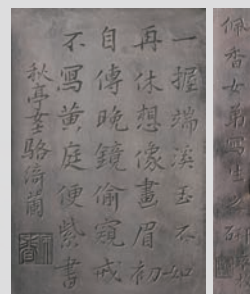 佩香女弟寫生之研
一握端溪玉不如
再休想像畫眉初
自傳晚鏡偷窺戒
不寫黃庭便紫書
秋亭女史駱綺蘭